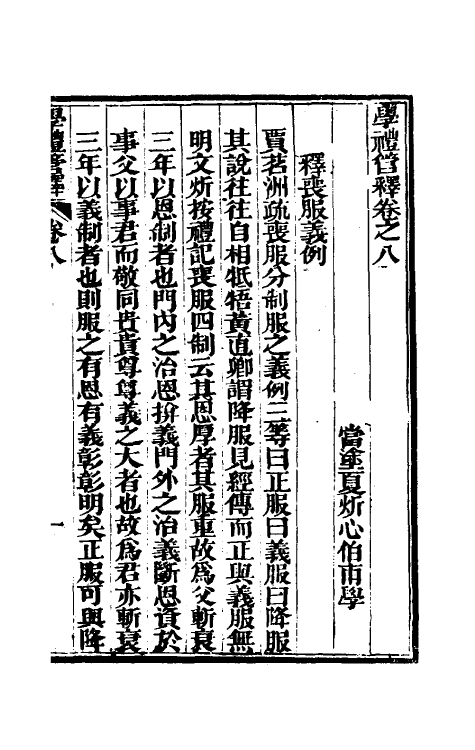 學禮管釋卷之八
當塗夏炘心伯甫學
釋喪服義例
賈茗洲疏喪服分制服之義例三等曰正服曰義服曰降服
其說往往自相牴牾黃直卿謂降服見經傳而正與義服無
明文炘按禮記喪服四制云其恩厚者其服重故爲父斬衰
三年以恩制者也門內之治恩揜義門外之治義斷恩資於
事父以事君而敬同貴貴尊尊義之大者也故爲君亦斬衰
三年以義制者也則服之有恩有義彰彰明矣正服可與降
學禮管釋 卷八 一